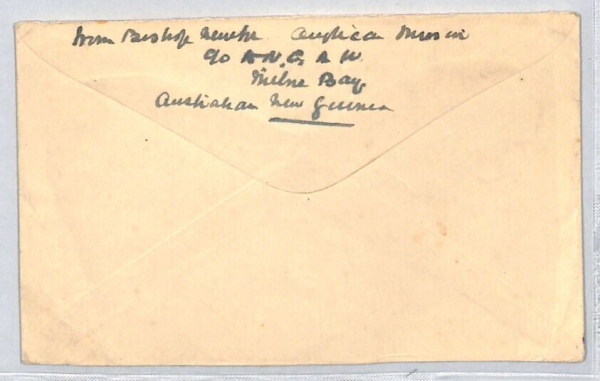 from Bishop Newton Anglican Mission
c/o A. N. G. A. U.
Milne Bay
Australian New Guinea